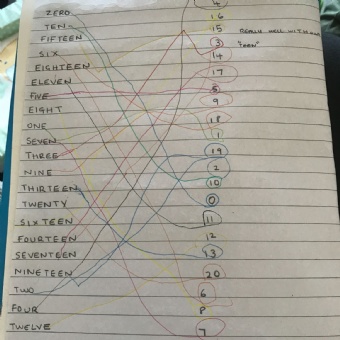 4
ZERO 16
TEN 15 REALLY WELL WITHOUT
FIFTEEN 3 "TEEN"
SIX 14
EIGHTEEN 17
ELEVEN
FIVE 5
EIGHT 9
ONE 18
SEVEN 1
THREE 19
NINE 2
THIRTEEN 10
TWENTY 0
SIXTEEN 11
FOURTEEN 12
SEVENTEEN 13
NINETEEN 20
TWO 6
FOUR 8
TWELVE 7